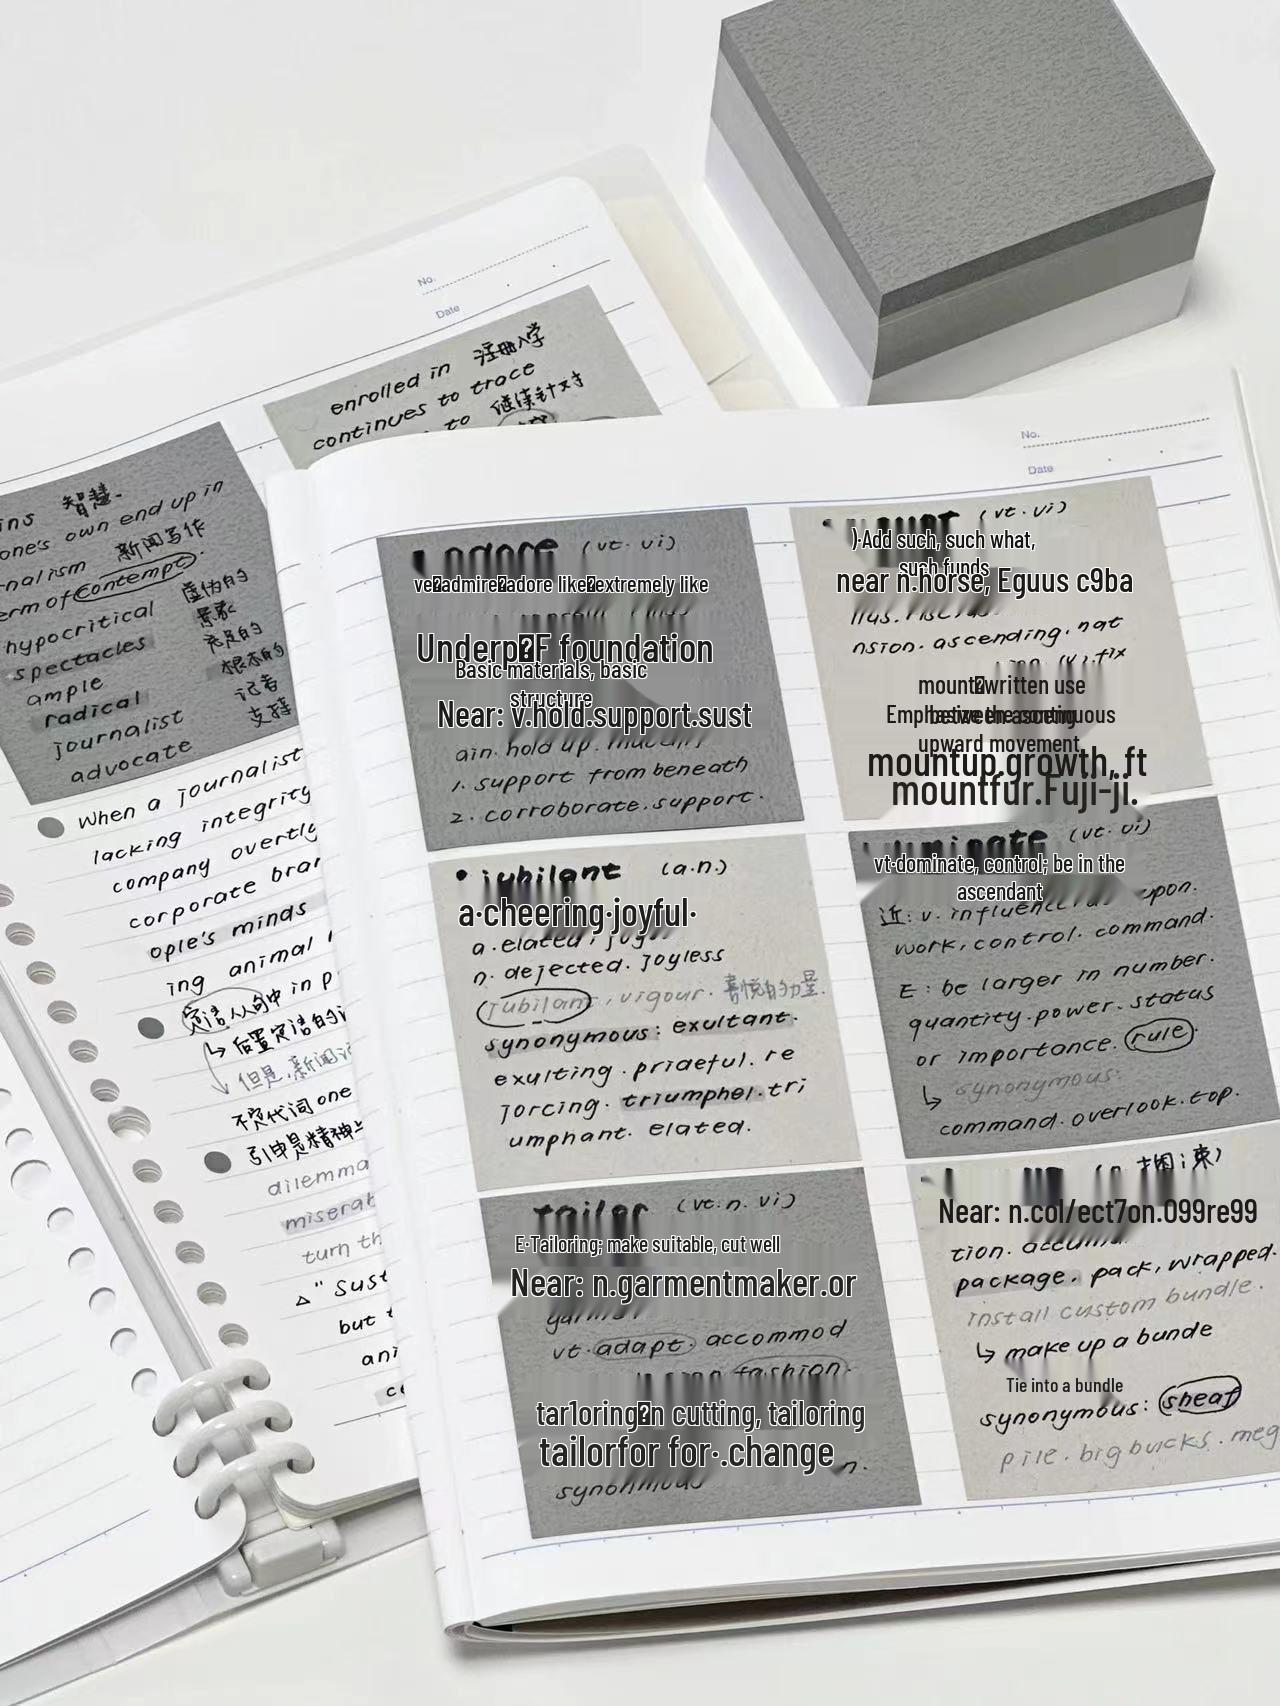 No.
Date
enrolled in 注册入学
continues to trace
to 继续针对
ins 智慧.
one's own end up in
-nalism 新闻写作
erm of contempt.
hypocritical 虚伪的
spectacles 景象
ample 充足的
radical 根本的
journalist 记者
advocate 支持
When a journalist
lacking integrity
company overtly
corporate brar
ople's minds
ing animal
定语从句中 in p
后置定语的
但是,新闻
不定代词 one
引申是精神上
dilemma
miserat
turn th
" Sust
but t
ani
ce
No.
Date
adore (vt. vi)
admire adore like extremely like
Underp F foundation
Basic materials, basic
structure
Near: v.hold.support.sust
ain. hold up.
1. support from beneath
2. corroborate. support.
(vt. vi)
)·Add such, such what,
such funds
near n.horse, Eguus c9ba
nsion. ascending. nat
(v). fix
mount written use
upward movement
mountup.growth, ft
mountfur.Fuji-ji.
• jubilant (a.n.)
a·cheering·joyful·
a. elated;
n. dejected. joyless
jubilant, vigour. 喜悦的力量.
synonymous: exultant.
exulting. prideful. re
jorcing. triumphel. tri
umphant. elated.
(vt. vi)
vt·dominate, control; be in the
ascendant
近: v. influence upon.
work, control. command.
E: be larger in number.
quantity. power. status
or importance. rule.
↳ synonymous:
command. overlook. top.
tailor (vt. n. vi)
E·Tailoring; make suitable, cut well
Near: n.garmentmaker.or
vt. adapt. accommod
fashion.
tar1oring n cutting, tailoring
tailorfor for·.change
n.
synonmous
(n 捆;束)
Near: n.col/ect7on.099re99
tion.
package. pack, wrapped.
install custom bundle.
↳ make up a bunde
Tie into a bundle
synonymous: sheaf
pile. big bucks. meg